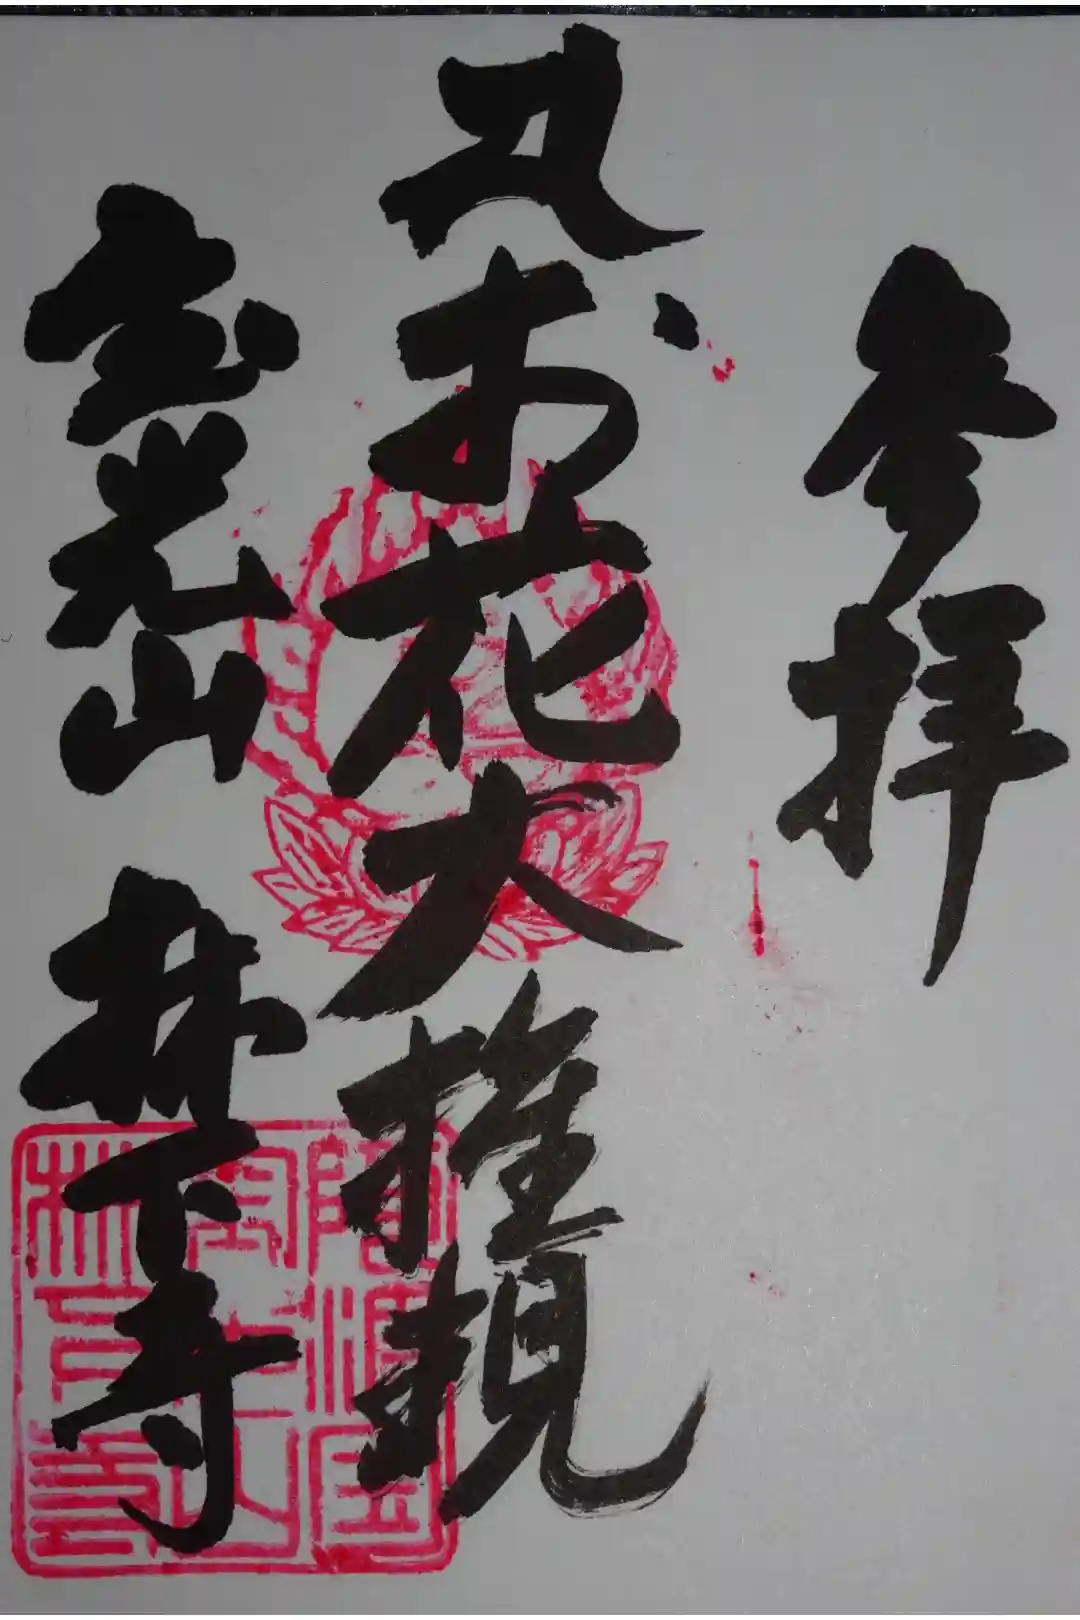 参拝
お花大権現
宝光山 林下寺